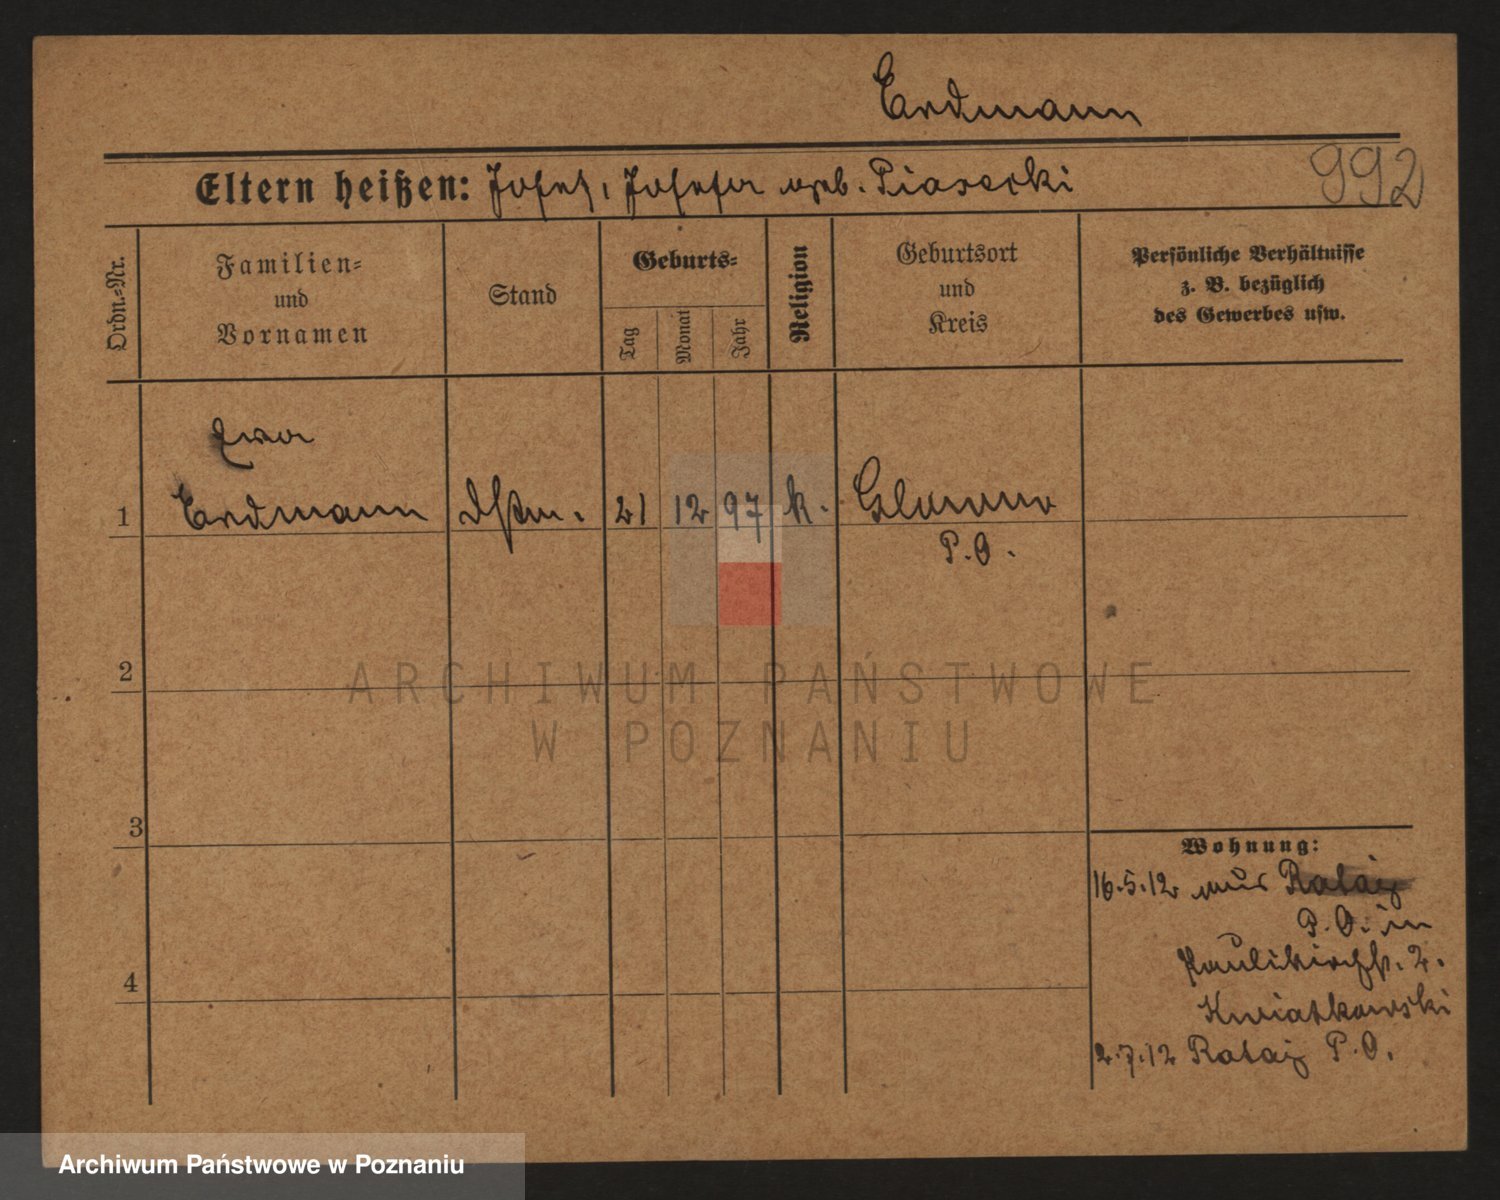 Erdmann
Eltern heißen: Josef, Josefa geb. Piasecki
992
Ordn.=Nr.
Familien=
und
Vornamen
Stand
Geburts=
Tag
Monat
Jahr
Religion
Geburtsort
und
Kreis
Persönliche Verhältnisse
z. B. bezüglich
des Gewerbes usw.
Ewa
1 Erdmann Dstm. 21 12 97 k. Glowno
P.O.
2
3
4
Wohnung:
16.5.12 aus Rataj
P.O. in
Paulikirchst. 2.
Kwiatkowski
2.7.12 Rataj P.O.
ARCHIWUM PAŃSTWOWE
W POZNANIU
Archiwum Państwowe w Poznaniu